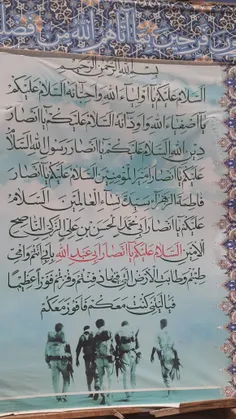 بسم الله الرحمن الرحيم
السلام عليكم يا اولياء الله واحبائه السلام عليكم
يا اصفياء الله واودائه السلام عليكم يا انصار
دين الله السلام عليكم يا انصار رسول الله السلام
عليكم يا انصار امير المؤمنين السلام عليكم يا انصار
فاطمة الزهراء سيدة نساء العالمين السلام
عليكم يا انصار ابي محمد الحسن بن علي الزكي الناصح
الامين السلام عليكم يا انصار ابي عبد الله بابي انتم وامي
طبتم وطابت الارض التي فيها دفنتم وفزتم فوزا عظيما
فياليتني كنت معكم فافوز معكم